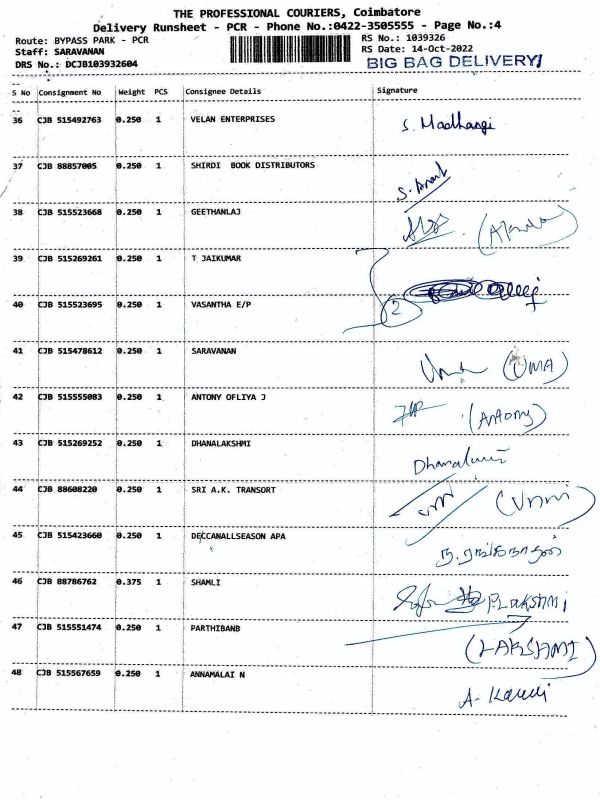 THE PROFESSIONAL COURIERS, Coimbatore
Delivery Runsheet - PCR - Phone No.:0422-3505555 - Page No.:4
Route: BYPASS PARK - PCR
RS No.: 1039326
Staff: SARAVANAN
RS Date: 14-Oct-2022
DRS No.: DCJB103932604
BIG BAG DELIVERY
S No Consignment No Weight PCS Consignee Details Signature
36 CJB 515492763 0.250 1 VELAN ENTERPRISES S. Madhangi
37 CJB 88857005 0.250 1 SHIRDI BOOK DISTRIBUTORS
38 CJB 515523668 0.250 1 GEETHANLAJ
39 CJB 515269261 0.250 1 T JAIKUMAR
40 CJB 515523695 0.250 1 VASANTHA E/P 2
41 CJB 515478612 0.250 1 SARAVANAN (UMA)
42 CJB 515555083 0.250 1 ANTONY OFLIYA J (Antony)
43 CJB 515269252 0.250 1 DHANALAKSHMI
44 CJB 88608220 0.250 1 SRI A.K. TRANSORT
45 CJB 515423660 0.250 1 DECCANALLSEASON APA
46 CJB 88786762 0.375 1 SHAMLI
47 CJB 515551474 0.250 1 PARTHIBANB (LAKSHMI)
48 CJB 515567659 0.250 1 ANNAMALAI N